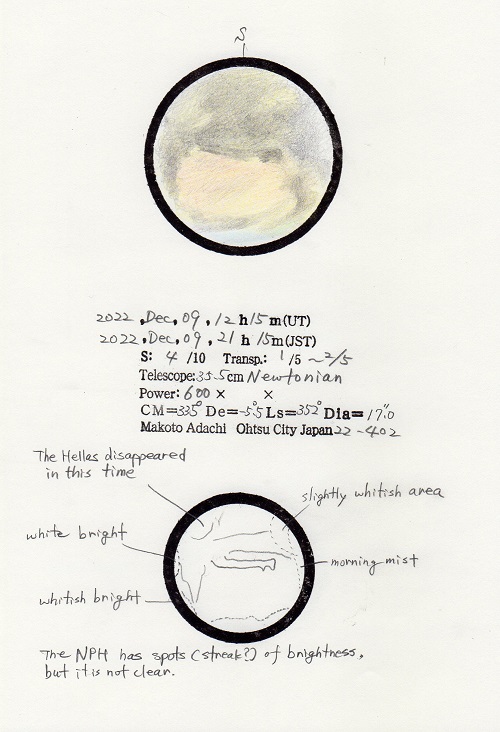 S
2022, Dec, 09, 12 h 15 m (UT)
2022, Dec, 09, 21 h 15m (JST)
S: 4 /10 Transp.: 1/5 ~ 2/5
Telescope: 35.5cm Newtonian
Power: 600 × ×
CM=335° De=-5.5° Ls=352° Dia=17."0
Makoto Adachi Ohtsu City Japan 22-402
The Hellas disappeared
in this time
slightly whitish area
white bright
morning mist
whitish bright
The NPH has spots (streak?) of brightness,
but it is not clear.